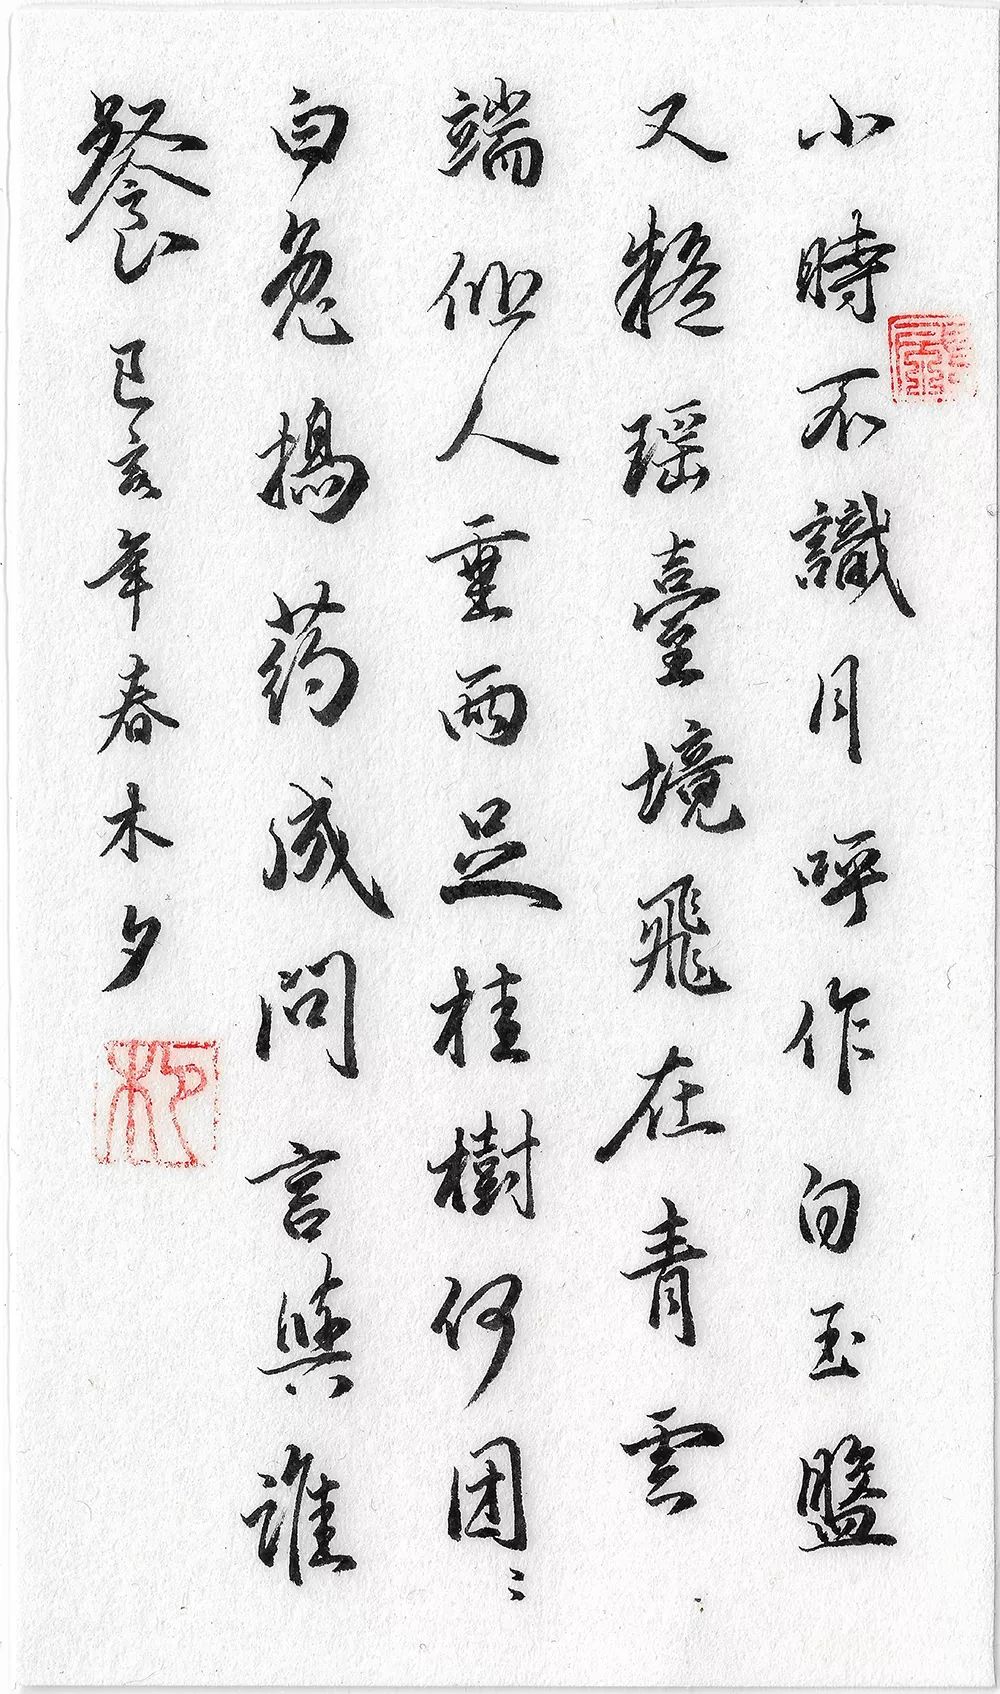 小時不識月呼作白玉盤
又疑瑶臺境飛在青雲
端仙人垂两足桂樹何团〻
白兔搗药成問言與誰
餐 己亥年春木夕